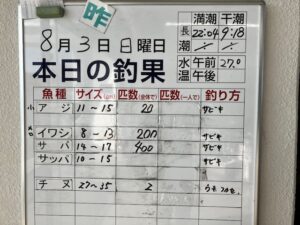 昨
8月3日日曜日
満潮 干潮
長潮 22:04 9:18
水温 午前 27.0
午後
本日の釣果
魚種 サイズ(cm) 匹数(全体で) 匹数(一人で) 釣り方
小 アジ 11~15 20 サビキ
イワシ 8~13 200 サビキ
サバ 14~17 400 サビキ
サッパ 10~15 サビキ
チヌ 27~35 2